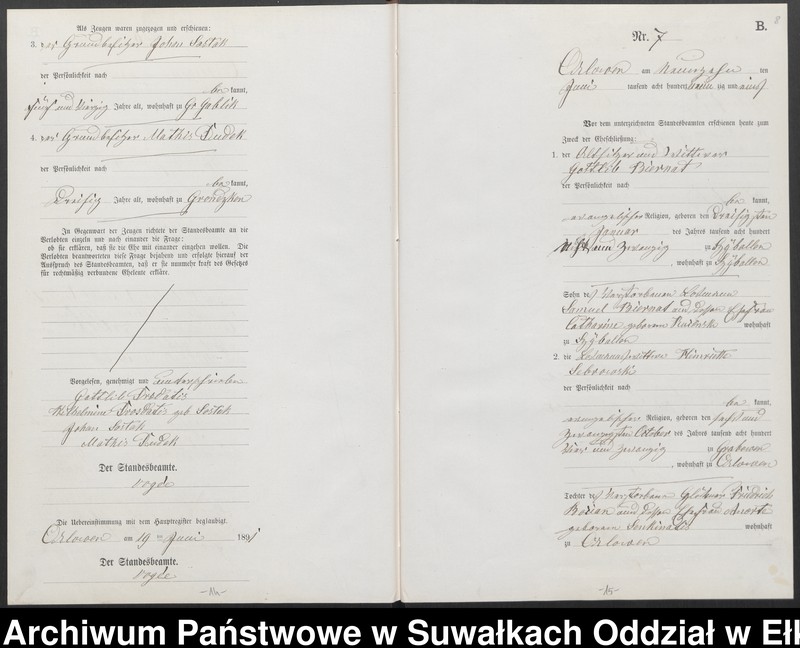 Als Zeugen waren zugezogen und erschienen:
3. der Grundbesitzer Johann Sostak
der Persönlichkeit nach
be kannt,
fünf und vierzig Jahre alt, wohnhaft zu Gr Gablik
4. der Grundbesitzer Mathis Dudek
der Persönlichkeit nach
be kannt,
Dreißig Jahre alt, wohnhaft zu Grondzken
In Gegenwart der Zeugen richtete der Standesbeamte an die
Verlobten einzeln und nach einander die Frage:
ob sie erklären, daß sie die Ehe mit einander eingehen wollen. Die
Verlobten beantworteten diese Frage bejahend und erfolgte hierauf der
Ausspruch des Standesbeamten, daß er sie nunmehr kraft des Gesetzes
für rechtmäßig verbundene Eheleute erkläre.
Vorgelesen, genehmigt und unterschrieben
Gottlieb
Wilhelmine geb Sostak
Johan Sostak
Mathis Dudek
Der Standesbeamte.
Vogée
Die Uebereinstimmung mit dem Hauptregister beglaubigt.
Orlowen am 19 ten Juni 1891
Der Standesbeamte.
Vogée
B.
8
Nr. 7
Orlowen am Neunzehn ten
Juni tausend acht hundert neun zig und eins
Vor dem unterzeichneten Standesbeamten erschienen heute zum
Zweck der Eheschließung:
1. der Altsitzer und Wittwer
Gottlieb Biernat
der Persönlichkeit nach
be kannt,
evangelischer Religion, geboren den Dreißigsten
Januar des Jahres tausend acht hundert
und zwanzig zu Szöballen
, wohnhaft zu Szöballen
Sohn des Verstorbenen Losmann
Samuel Biernat und dessen Ehefrau
Catharine geborenen wohnhaft
zu Szöballen
2. die Losmannswittwe
der Persönlichkeit nach
be kannt,
evangelischer Religion, geboren den sechs und
zwanzigsten October des Jahres tausend acht hundert
vier und zwanzig zu Grabowen
, wohnhaft zu Orlowen
Tochter des Verstorbenen Friedrich
und dessen Ehefrau
geborenen wohnhaft
zu Orlowen
-15-
Archiwum Państwowe w Suwałkach Oddział w Ełk